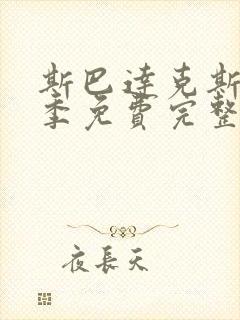 斯巴达克斯
季免费完整
夜長天